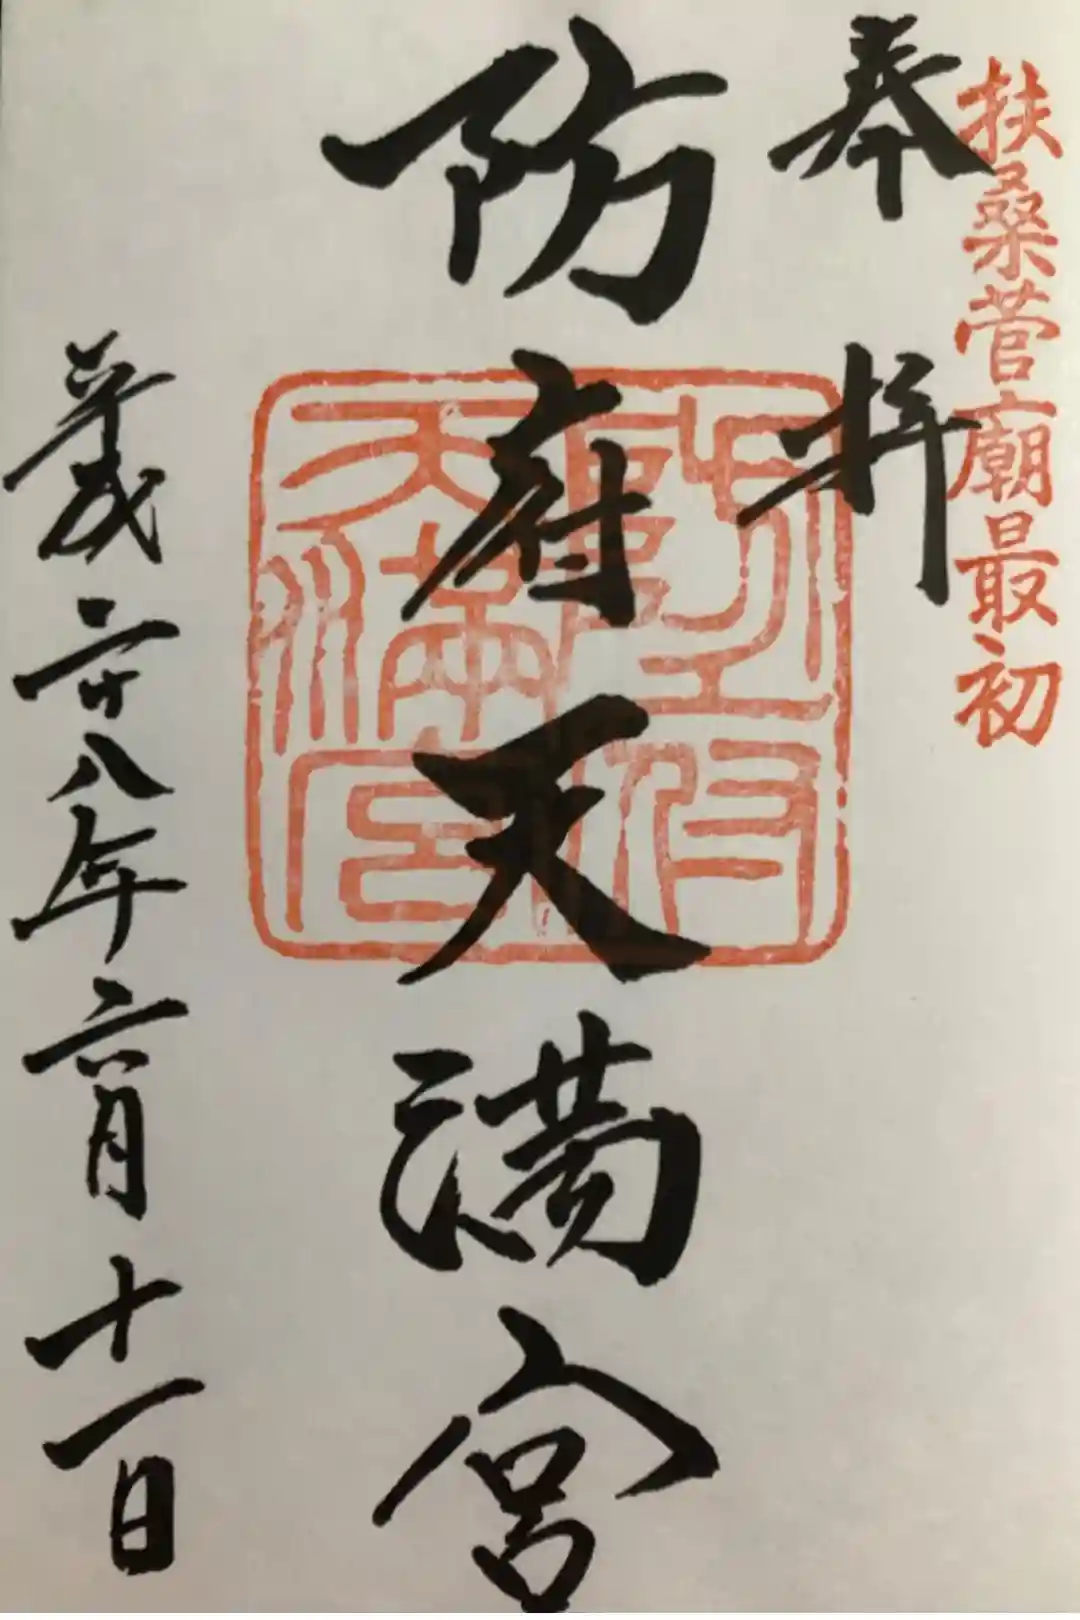 扶桑菅廟最初
奉拝
防府天満宮
平成二十八年六月十一日
防府
天満宮